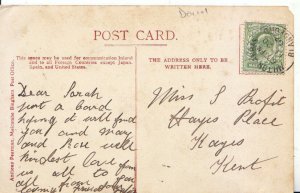 Dev.1
POST CARD.
This space may be used for communication Inland
and to all Foreign Countries except Japan,
Spain, and the United States.
THE ADDRESSES ONLY TO BE
WRITTEN HERE.
Dear Sarah
just a Card
hoping it will find
you and May
and Ron well
kindest love from
us all to you
all from
Miss S Profit
Hayes Place
Hayes
Kent